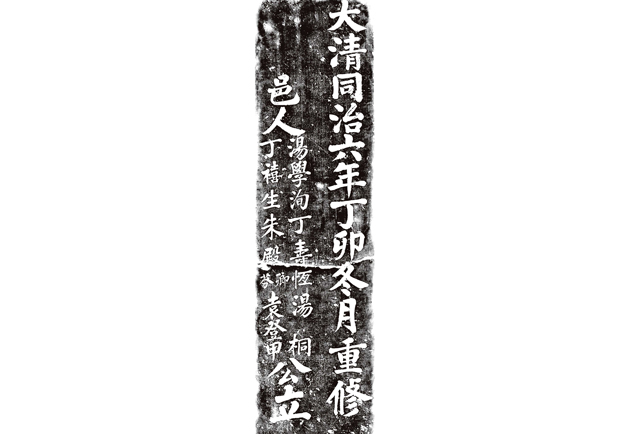 大清同治六年丁卯冬月重修
邑人
湯學洵丁壽恆湯桐
丁禧生朱殿卿袁登甲
公立